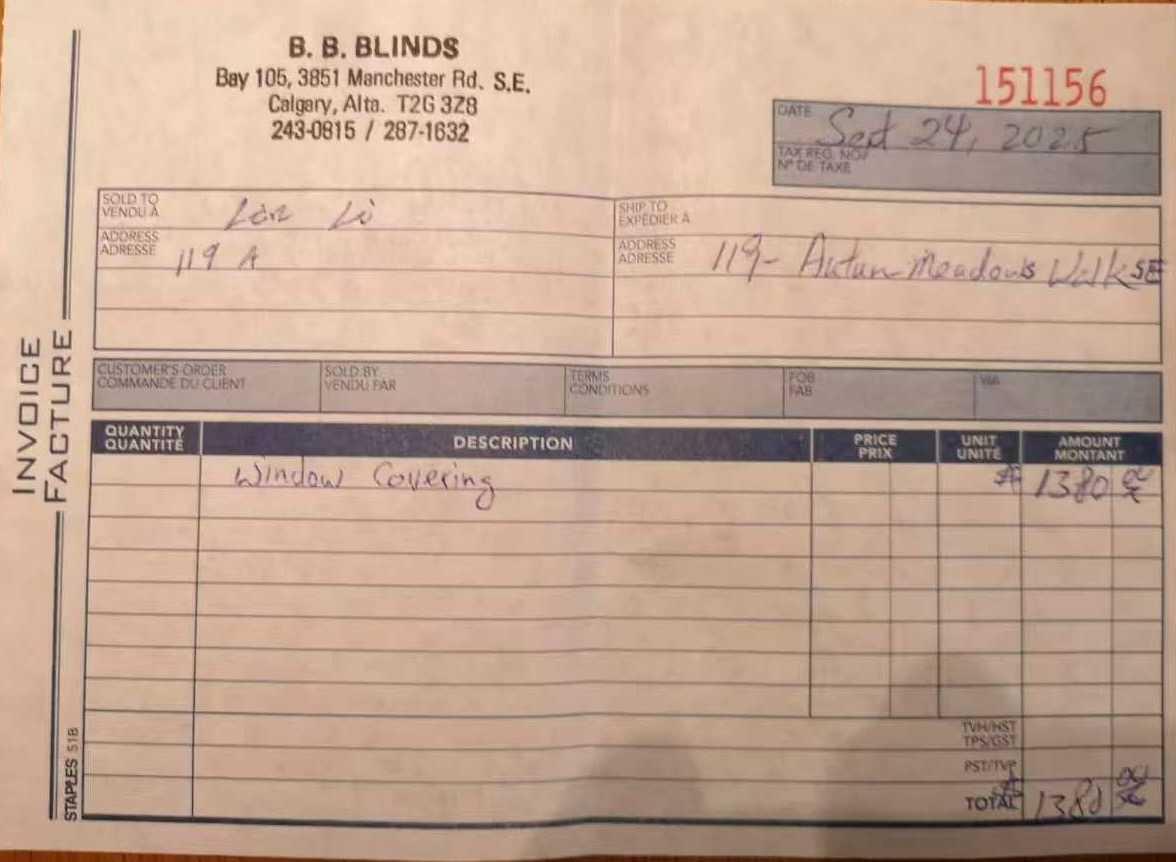 B. B. BLINDS
Bay 105, 3851 Manchester Rd. S.E.
Calgary, Alta. T2G 3Z8
243-0815 / 287-1632
151156
DATE Sept 24, 2025
TAX REG. NO/
Nº DE TAXE
SOLD TO
VENDU À
Li
ADDRESS
ADRESSE
119 A
SHIP TO
EXPÉDIER À
ADDRESS
ADRESSE
119- Autun Meadows Walk SE
INVOICE
FACTURE
CUSTOMER'S ORDER
COMMANDE DU CLIENT
SOLD BY
VENDU PAR
TERMS
CONDITIONS
FOB
FAB
VIA
QUANTITY
QUANTITÉ
DESCRIPTION
PRICE
PRIX
UNIT
UNITÉ
AMOUNT
MONTANT
Window Covering $ 1380
TVH/HST
TPS/GST
PST/TVP
TOTAL $ 1380
STAPLES 51B